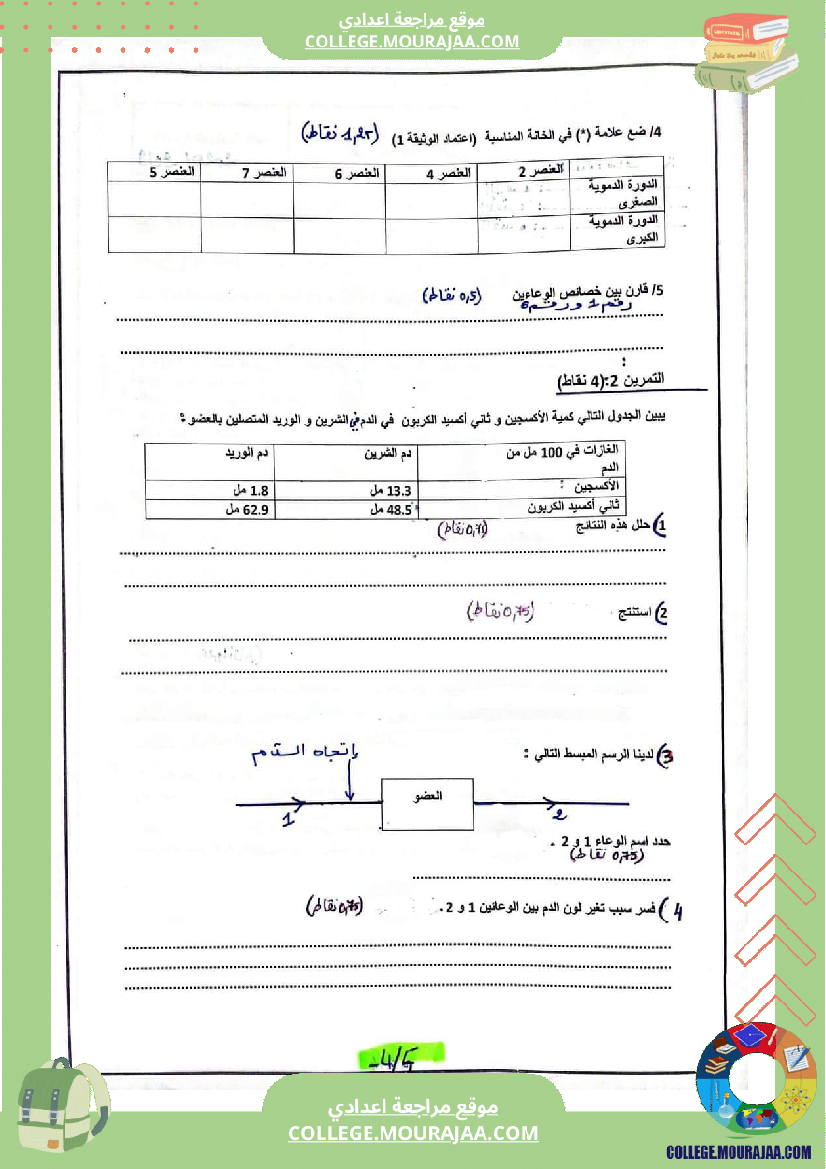 موقع مراجعة اعدادي
COLLEGE.MOURAJAA.COM
4/ ضع علامة (*) في الخانة المناسبة (اعتماد الوثيقة 1) (1,25 نقاط)
العنصر 2 العنصر 4 العنصر 6 العنصر 7 العنصر 5
الدورة الدموية
الصغرى
الدورة الدموية
الكبرى
5/ قارن بين خصائص الوعاءين (0,5 نقاط)
رقم 1 و رقم 6
:
التمرين 2:(4 نقاط)
يبين الجدول التالي كمية الأكسجين و ثاني أكسيد الكربون في الدم في الشرين و الوريد المتصلين بالعضو :
الغازات في 100 مل من دم الشرين دم الوريد
الدم
الأكسجين : 13.3 مل 1.8 مل
ثاني أكسيد الكربون 48.5 مل 62.9 مل
1) حلل هذه النتائج (0,75 نقاط)
2) استنتج (0,75 نقاط)
3) لدينا الرسم المبسط التالي :
إتجاه الدم
العضو
1
2
حدد اسم الوعاء 1 و 2 .
(0,75 نقاط)
4) فسر سبب تغير لون الدم بين الوعائين 1 و 2. (0,75 نقاط)
-4/5
موقع مراجعة اعدادي
COLLEGE.MOURAJAA.COM
COLLEGE.MOURAJAA.COM